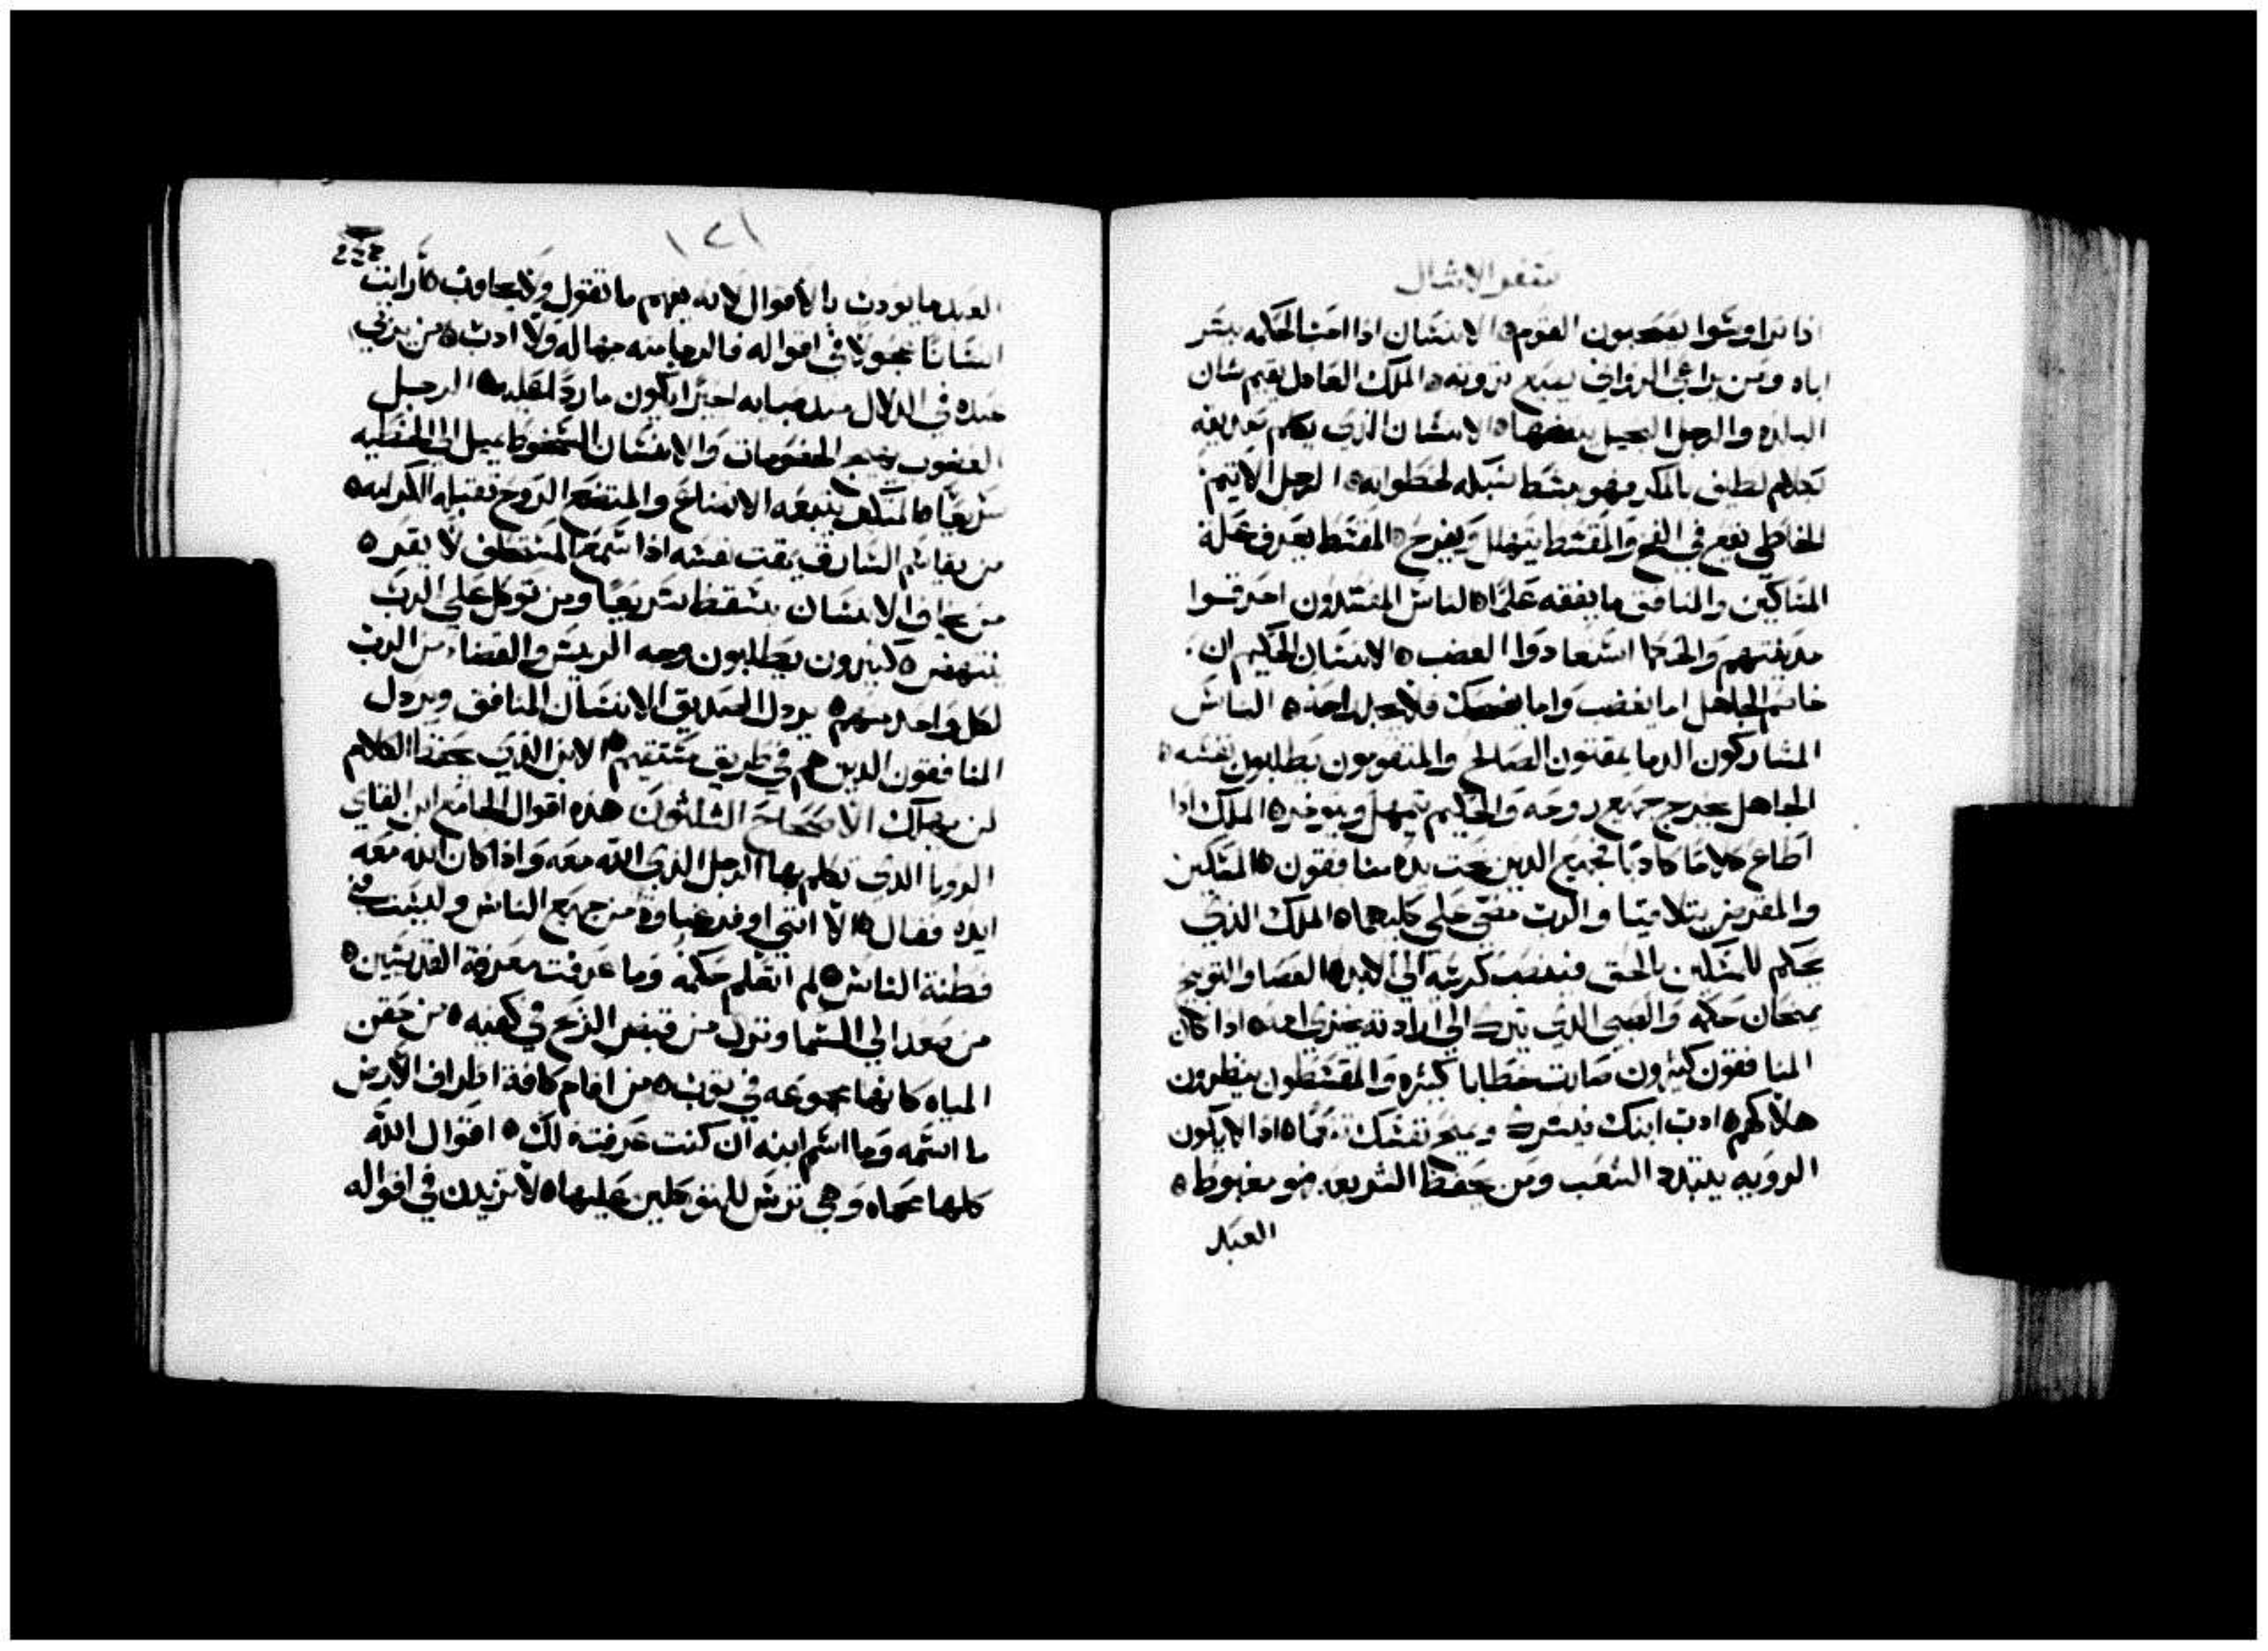 سفر الامثال
اذا تراوسوا يتعجبون القوم ه الانسان اذا احب الحكمه يسر
اباه ومن يراعي الزواني يضيع ثروته ه الملك العادل يقيم شان
البلده والرجل البخيل ينقضها ه الانسان الذي يكلم صديقه
بكلام لطيف بالمكر فهو يبسط شبكه لخطواته ه الرجل الاثيم
الخاطي يقع في الفخ والمقسط يتهلل ويفرح ه المقسط يعرف علة
المساكين والمنافق ما يفقه علمًا ه الناس المفسدون احرقوا
مدينتهم والحكما استعادوا الغضب ه الانسان الحكيم ان
خاصم الجاهل اما يغضب واما يضحك فلا يجد راحة ه الناس
المشاركون الدما يمقتون الصالح والمتقومون يطلبون نفسه ه
الجاهل يخرج جميع روحه والحكيم يتمهل ويتوخره الملك اذا
اطاع كلامًا كاذبًا فجميع الذين تحت يده منافقون ه المسكين
والمقرض يتلاقيا والرب مضي على كليهما ه الملك الذي
يحكم للمساكين بالحق فينصب كرسيه الى الابد ه العصا والتوبيخ
يمنحان حكمه والصبي الذي يترك الى ارادته يخزي امه ه اذا كان
المنافقون كثيرون صارت خطايا كثيره والمقسطون ينظرون
هلاكهم ه ادب ابنك فيسرك ويمنح نفسك نعمًا ه اذا لا يكون
الرويه يتبدد الشعب ومن يحفظ الشريعه فهو مغبوط ه
العبد
١٢١
العبد ما يودب بالاقوال لانه يفهم ما تقول ولا يجاوب ه رايت
انسانًا عجولًا في اقواله فالرجا منه جهاله ولا ادب ه من يربي
عبده في الدلال منذ صبايه اخيرًا يكون ماردًا لقلبه ه الرجل
الغضوب يهيج الخصومات والانسان السخوط يميل الي الخطيه
سريعًا ه المتكبر يتبعه الاتضاع والمتضع الروح تقبله الكرامه ه
من يقاسم السارق يمقت نفسه اذا سمع المستحلف لا يقر ه
من يخاف الانسان يسقط سريعًا ومن توكل على الرب
ينتهض ه كثيرون يطلبون وجه الريس والقضاء من الرب
لكل واحد منهم ه يرذل الصديق الانسان المنافق ويرذل
المنافقون الذين هم في طريق مستقيم ه الابن الذي يحفظ الكلام
لن يهلك الاصحاح الثلثون هذه اقوال الجامع ابن القاي
الرويا الذي تكلم بها الرجل الذي الله معه واذا كان الله معه
ايده فقال ه الا انني اوفر غباوة من جميع الناس وليست في
فطنة الناس ه لم اتعلم حكمة وما عرفت معرفة القديسين ه
من صعد الي السما ونزل من قبض الريح في كفيه ه من حقن
المياه كانها مجموعه في ثوب ه من اقام كافة اطراف الارض
ما اسمه وما اسم ابنه ان كنت عرفته لك ه اقوال الله
كلها محماه وهي ترس للمتوكلين عليها ه لا تزيدن في اقواله